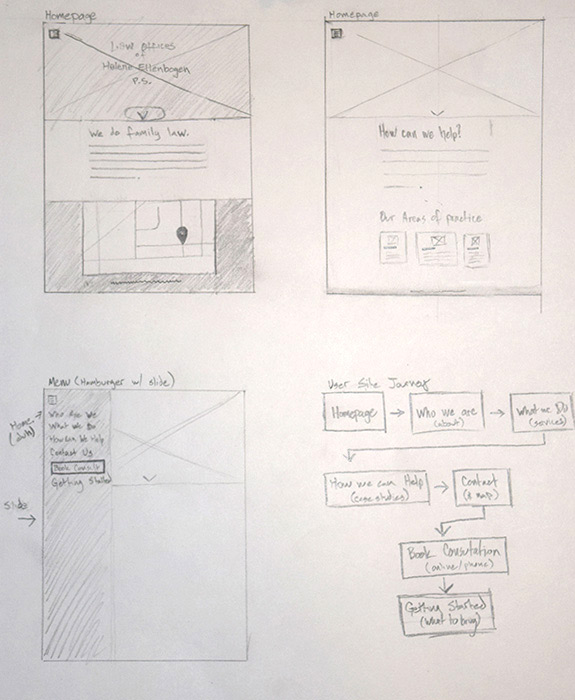 Homepage
LAW OFFICES
of
Helene Ellenbogen
P.S.
We do family law.
Homepage
How can we help?
Our Areas of practice
Menu (Hamburger w/ slide)
Home
Who Are We
What We Do
How Can We Help
Contact Us
Book Consult
Getting Started
Slide
User Site Journey
Homepage
Who we are
(about)
What we Do
(services)
How we can Help
(case studies)
Contact
(& map)
Book Consutation
(online/phone)
Getting Started
(what to bring)